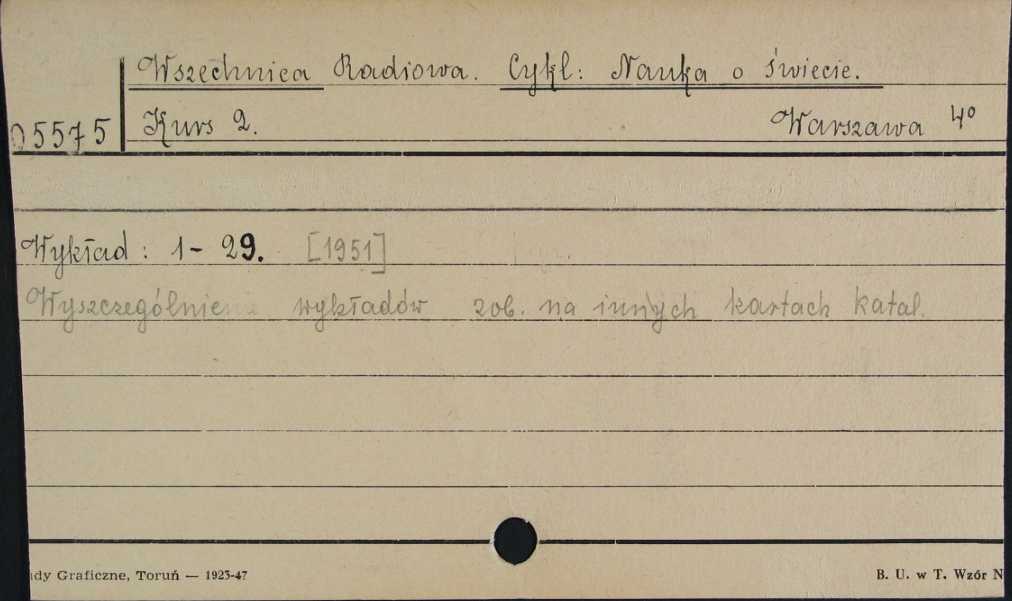 Wszechnica Radiowa. Cykl: Nauka o świecie.
05575 Kurs 2. Warszawa 4º
Wykład: 1-29. [1951]
Wyszczególnienie wykładów zob. na innych kartach katal.
Graficzne, Toruń — 1923-47 B. U. w T. Wzór